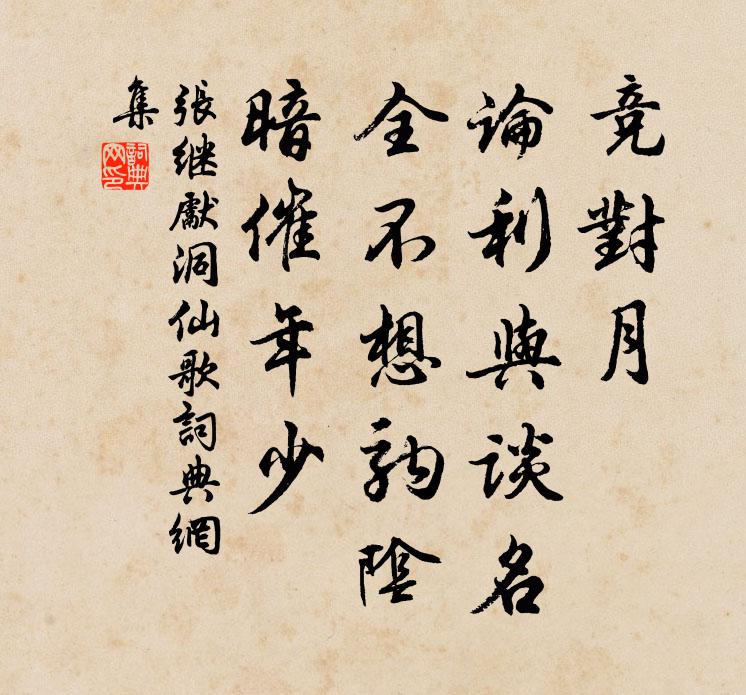 竞對月
論利與談名
全不想韵陰
暗催年少
張继獻洞仙歌詞典網
集
詞典网印